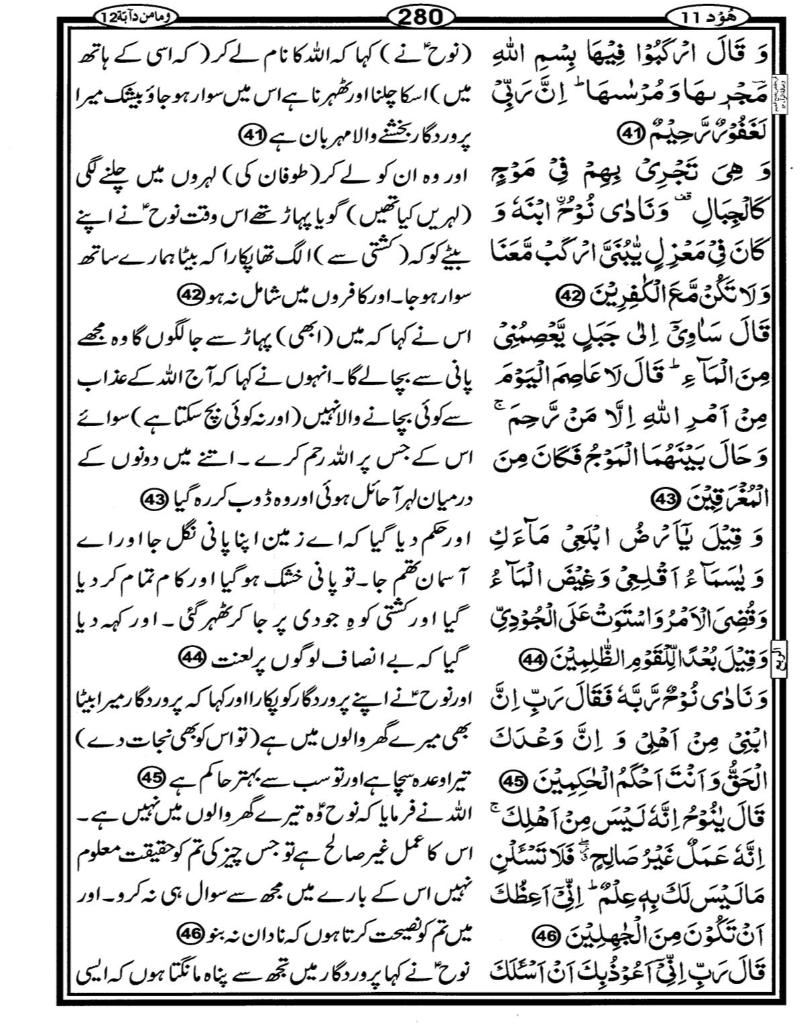 ھُوۡد 11
280
وَمَا مِنۡ دَآبَّۃٍ 12
وَ قَالَ ارۡكَبُوۡا فِيۡهَا بِسۡمِ اللّٰهِ
مَجۡرٖٮهَا وَ مُرۡسٰٮهَا‌ ؕ اِنَّ رَبِّىۡ
لَغَفُوۡرٌ رَّحِيۡمٌ 41
وَ هِىَ تَجۡرِىۡ بِهِمۡ فِىۡ مَوۡجٍ
كَالۡجِبَالِ وَنَادٰى نُوۡحُ اۨبۡنَهٗ وَ
كَانَ فِىۡ مَعۡزِلٍ يّٰبُنَىَّ ارۡكَبْ مَّعَنَا
وَلَا تَكُنۡ مَّعَ الۡكٰفِرِيۡنَ 42
قَالَ سَاٰوِىۡۤ اِلٰى جَبَلٍ يَّعۡصِمُنِىۡ
مِنَ الۡمَآءِ‌ ؕ قَالَ لَا عَاصِمَ الۡيَوۡمَ
مِنۡ اَمۡرِ اللّٰهِ اِلَّا مَنۡ رَّحِمَ‌ ۚ
وَحَالَ بَيۡنَهُمَا الۡمَوۡجُ فَكَانَ مِنَ
الۡمُغۡرَقِيۡنَ 43
وَ قِيۡلَ يٰۤاَرۡضُ ابۡلَعِىۡ مَآءَكِ
وَ يٰسَمَآءُ اَقۡلِعِىۡ وَغِيۡضَ الۡمَآءُ
وَقُضِىَ الۡاَمۡرُ وَاسۡتَوَتۡ عَلَى الۡجُوۡدِىِّ
وَقِيۡلَ بُعۡدًا لِّلۡقَوۡمِ الظّٰلِمِيۡنَ 44
وَنَادٰى نُوۡحٌ رَّبَّهٗ فَقَالَ رَبِّ اِنَّ
ابۡنِىۡ مِنۡ اَهۡلِىۡ وَ اِنَّ وَعۡدَكَ
الۡحَقُّ وَاَنۡتَ اَحۡكَمُ الۡحٰكِمِيۡنَ 45
قَالَ يٰنُوۡحُ اِنَّهٗ لَـيۡسَ مِنۡ اَهۡلِكَ‌ ۚ
اِنَّهٗ عَمَلٌ غَيۡرُ صَالِحٍ فَلَا تَسۡــَٔلۡنِ
مَا لَـيۡسَ لَـكَ بِهٖ عِلۡمٌ‌ ؕ اِنِّىۡۤ اَعِظُكَ
اَنۡ تَكُوۡنَ مِنَ الۡجٰهِلِيۡنَ 46
قَالَ رَبِّ اِنِّىۡۤ اَعُوۡذُ بِكَ اَنۡ اَسۡـَٔـلَكَ
(نوحؑ نے) کہا کہ اللہ کا نام لے کر (کہ اسی کے ہاتھ
میں) اسکا چلنا اور ٹھہرنا ہے اس میں سوار ہو جاؤ بیشک میرا
پروردگار بخشنے والا مہربان ہے 41
اور وہ ان کو لے کر (طوفان کی) لہروں میں چلنے لگی
(لہریں کیا تھیں) گویا پہاڑ تھے اس وقت نوحؑ نے اپنے
بیٹے کو کہ (کشتی سے) الگ تھا پکارا کہ بیٹا ہمارے ساتھ
سوار ہو جا۔ اور کافروں میں شامل نہ ہو 42
اس نے کہا کہ میں (ابھی) پہاڑ سے جا لگوں گا وہ مجھے
پانی سے بچا لے گا۔ انہوں نے کہا کہ آج اللہ کے عذاب
سے کوئی بچانے والا نہیں (اور نہ کوئی بچ سکتا ہے) سوائے
اس کے جس پر اللہ رحم کرے۔ اتنے میں دونوں کے
درمیان لہر آ حائل ہوئی اور وہ ڈوب کر رہ گیا 43
اور حکم دیا گیا کہ اے زمین اپنا پانی نگل جا اور اے
آسمان تھم جا۔ تو پانی خشک ہو گیا اور کام تمام کر دیا
گیا اور کشتی کوہِ جودی پر جا کر ٹھہر گئی۔ اور کہہ دیا
گیا کہ بے انصاف لوگوں پر لعنت 44
اور نوحؑ نے اپنے پروردگار کو پکارا اور کہا کہ پروردگار میرا بیٹا
بھی میرے گھر والوں میں ہے (تو اس کو بھی نجات دے)
تیرا وعدہ سچا ہے اور تو سب سے بہتر حاکم ہے 45
اللہ نے فرمایا کہ نوحؑ وہ تیرے گھر والوں میں نہیں ہے۔
اس کا عمل غیر صالح ہے تو جس چیز کی تم کو حقیقت معلوم
نہیں اس کے بارے میں مجھ سے سوال ہی نہ کرو۔ اور
میں تم کو نصیحت کرتا ہوں کہ نادان نہ بنو 46
نوحؑ نے کہا پروردگار میں تجھ سے پناہ مانگتا ہوں کہ ایسی
الربع